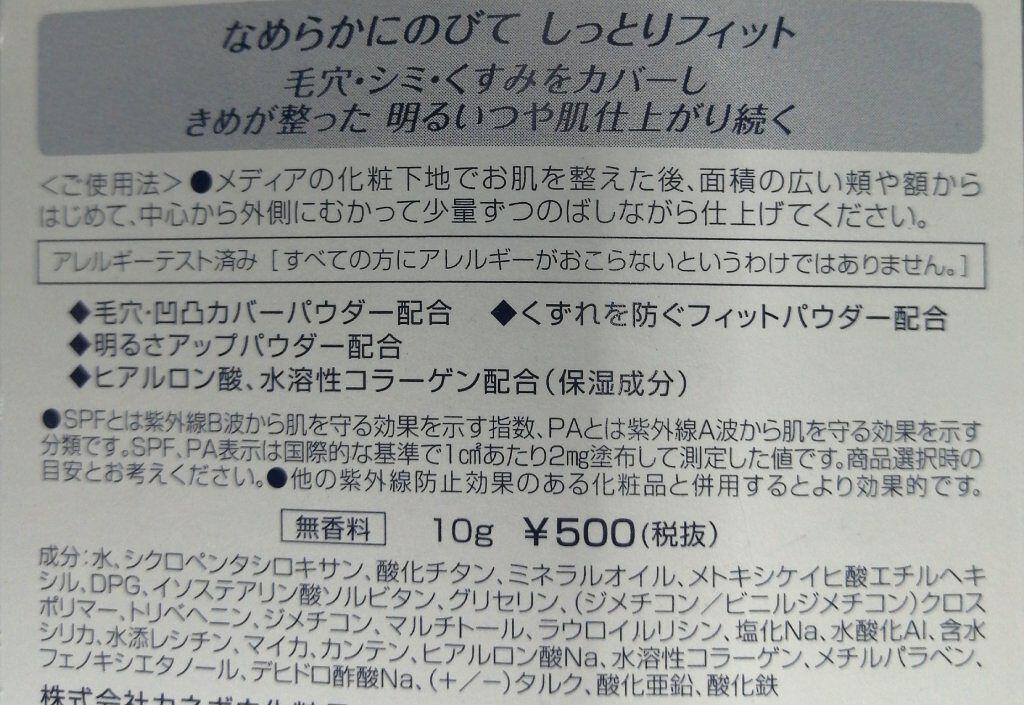 なめらかにのびて しっとりフィット
毛穴・シミ・くすみをカバーし
きめが整った 明るいつや肌仕上がり続く
＜ご使用法＞●メディアの化粧下地でお肌を整えた後、面積の広い頬や額から
はじめて、中心から外側にむかって少量ずつのばしながら仕上げてください。
アレルギーテスト済み［すべての方にアレルギーがおこらないというわけではありません。］
◆毛穴・凹凸カバーパウダー配合　◆くずれを防ぐフィットパウダー配合
◆明るさアップパウダー配合
◆ヒアルロン酸、水溶性コラーゲン配合（保湿成分）
●SPFとは紫外線B波から肌を守る効果を示す指数、PAとは紫外線A波から肌を守る効果を示す
分類です。SPF、PA表示は国際的な基準で1c㎡あたり2mg塗布して測定した値です。商品選択時の
目安とお考えください。●他の紫外線防止効果のある化粧品と併用するとより効果的です。
無香料　10g　¥500（税抜）
成分：水、シクロペンタシロキサン、酸化チタン、ミネラルオイル、メトキシケイヒ酸エチルヘキ
シル、DPG、イソステアリン酸ソルビタン、グリセリン、（ジメチコン／ビニルジメチコン）クロス
ポリマー、トリベヘニン、ジメチコン、マルチトール、ラウロイルリシン、塩化Na、水酸化Al、含水
シリカ、水添レシチン、マイカ、カンテン、ヒアルロン酸Na、水溶性コラーゲン、メチルパラベン、
フェノキシエタノール、デヒドロ酢酸Na、（＋／－）タルク、酸化亜鉛、酸化鉄
株式会社カネボウ化粧品